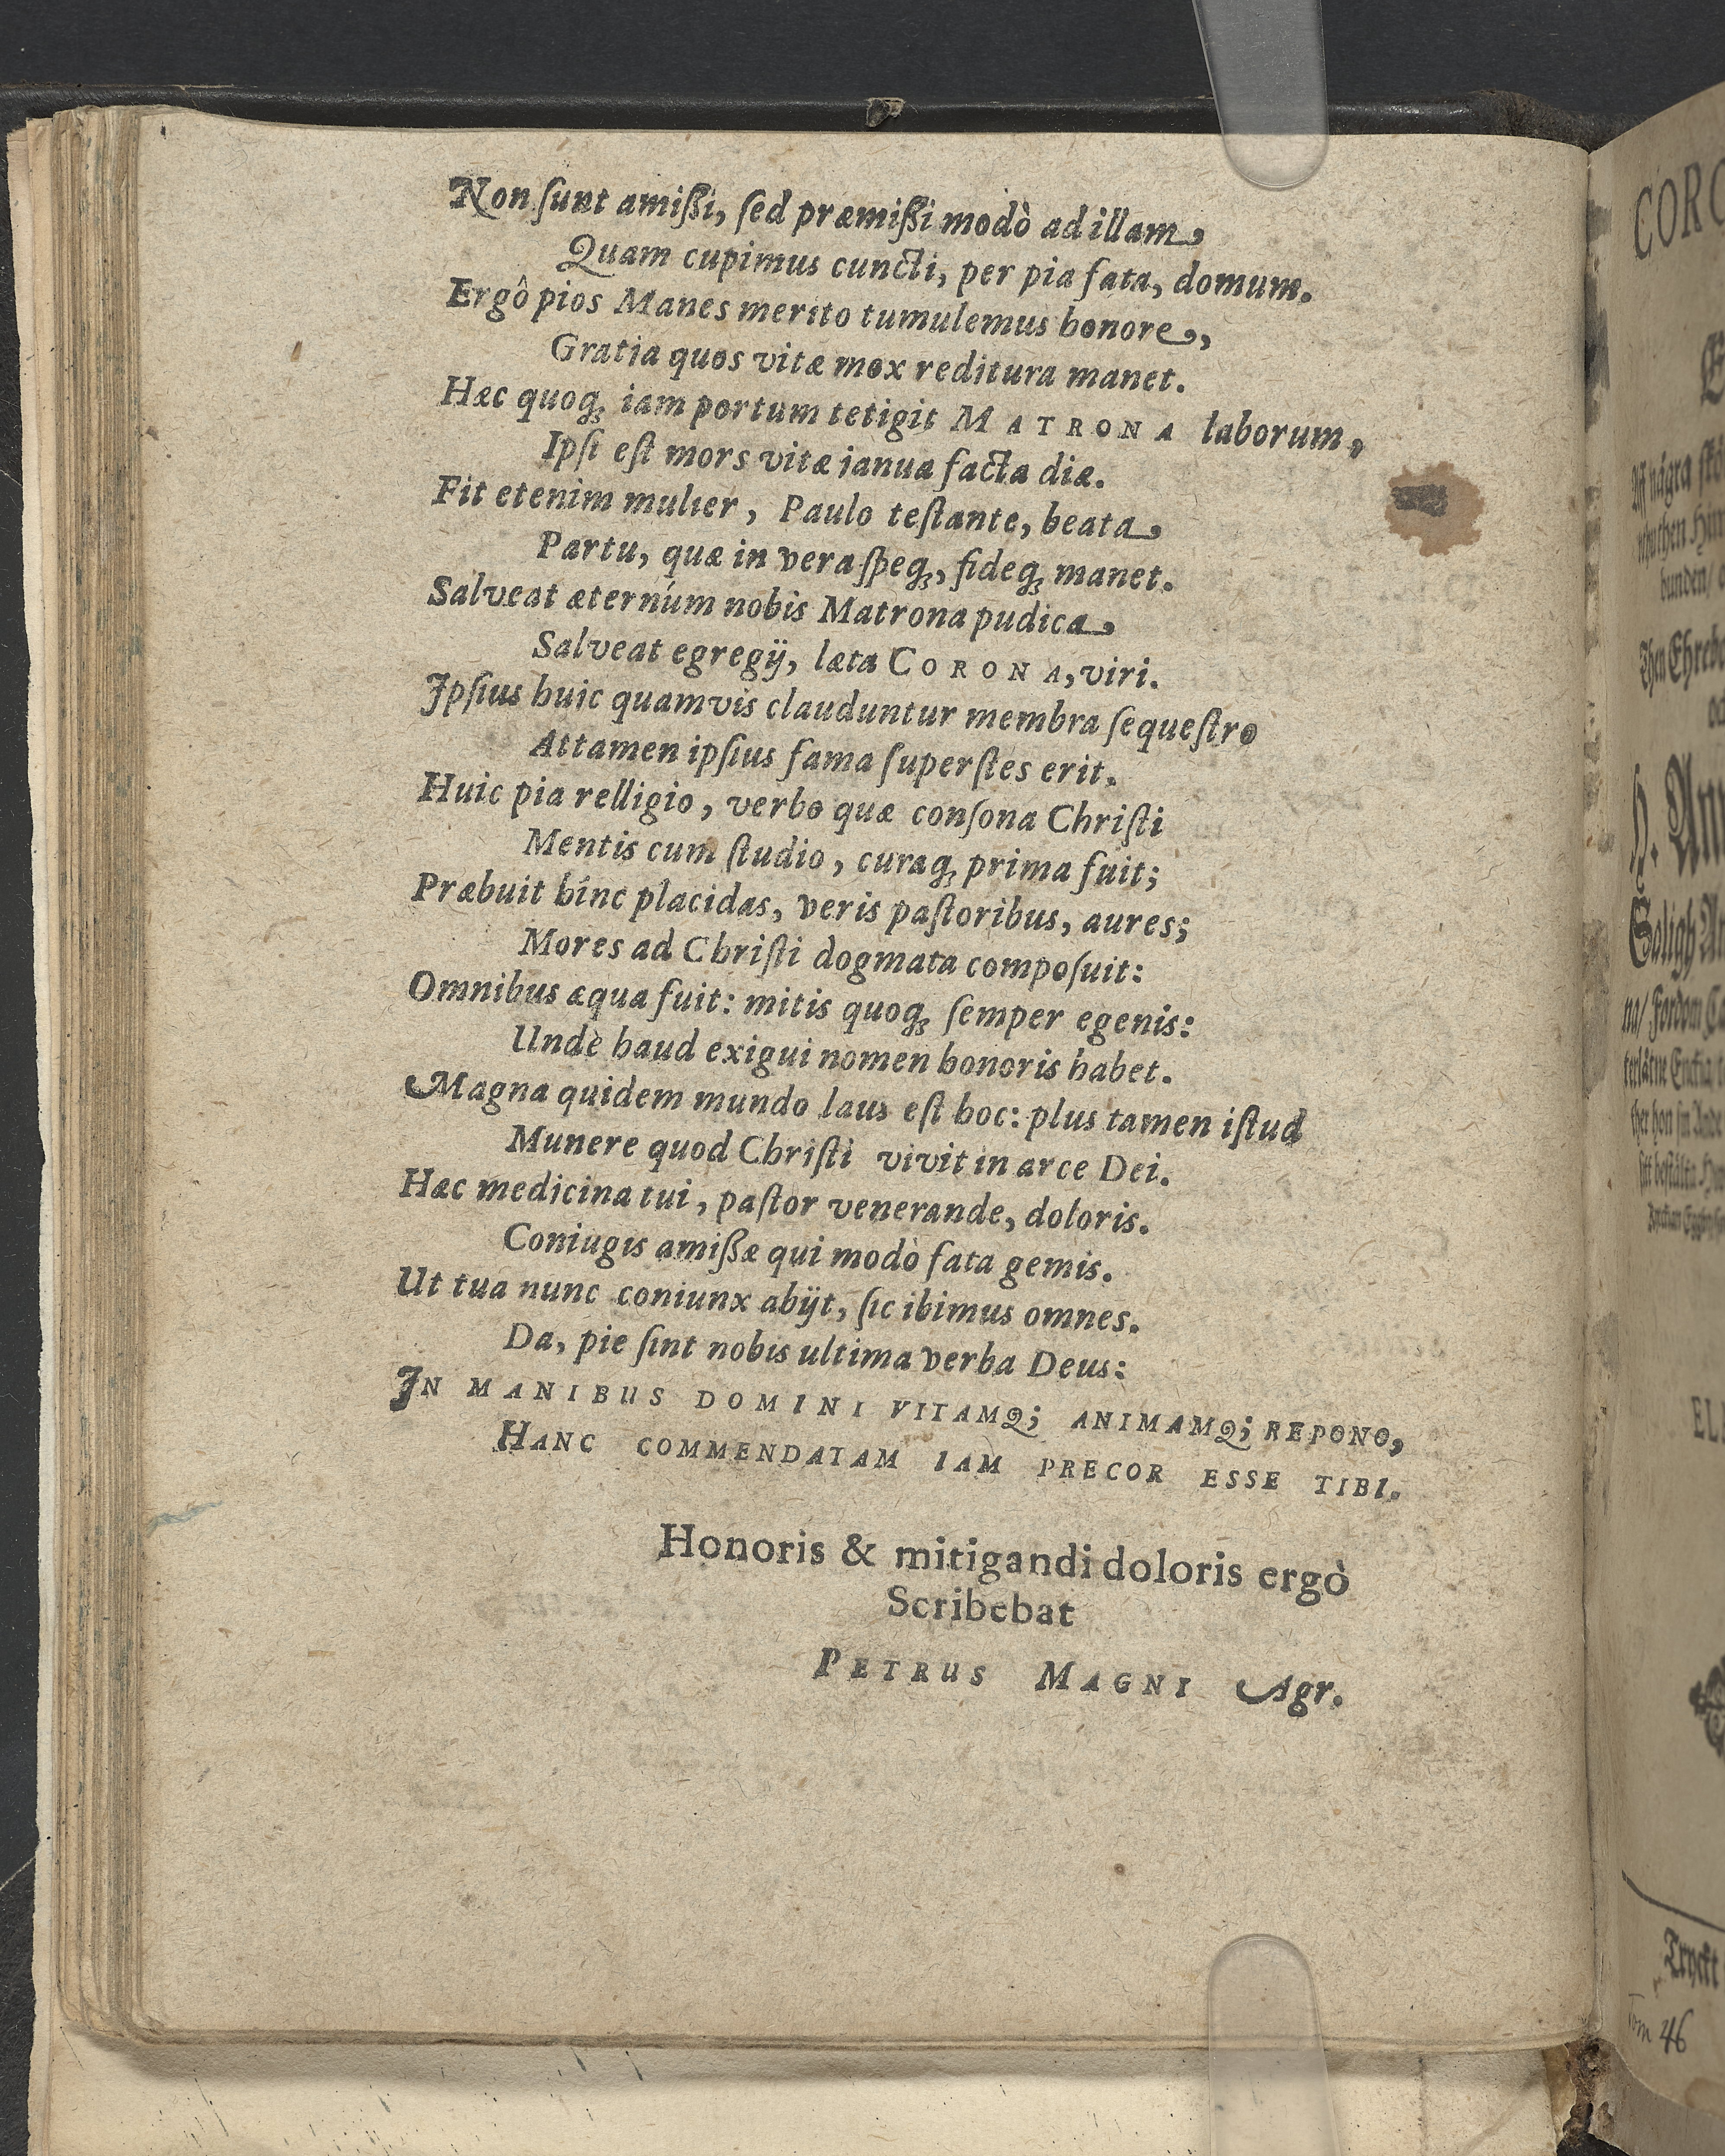 Non ſunt amiſſi, ſed præmiſſi modò ad illam,
Quam cupimus cuncti, per pia fata, domum.
Ergô pios Manes merito tumulemus honore,,
Gratia quos vitæ mox reditura manet.
Hæc quoq; iam portum tetigit MATRONA laborum,
Ipſi eſt mors vitæ ianua facta diæ.
Fit etenim mulier, Paulo teſtante, beata,
Partu, quæ in vera ſpeq;, fideq; manet.
Salveat æternúm nobis Matrona pudica,
Salveat egregij, læta CORONA, viri.
Ipſius huic quamvis clauduntur membra ſequeſtro
Attamen ipſius fama ſuperſtes erit.
Huic pia relligio, verbo quæ conſona Chriſti
Mentis cum ſtudio, curaq; prima fuit;
Præbuit hînc placidas, veris paſtoribus, aures;
Mores ad Chriſti dogmata compoſuit:
Omnibus æqua fuit: mitis quoq; ſemper egenis:
Undè haud exigui nomen honoris habet.
Magna quidem mundo laus eſt hoc: plus tamen iſtud
Munere quod Chriſti vivit in arce Dei.
Hæc medicina tui, paſtor venerande, doloris.
Coniugis amiſſæ qui modò fata gemis.
Ut tua nunc coniunx abijt, ſic ibimus omnes.
Da, pie ſint nobis ultima verba Deus:
IN MANIBUS DOMINI VITAMQ; ANIMAMQ; REPONO,
HANC COMMENDATAM IAM PRECOR ESSE TIBI.
Honoris & mitigandi doloris ergò
Scribebat
PETRUS MAGNI Agr.
CORO
Saligh
Tryckt
Tom 46